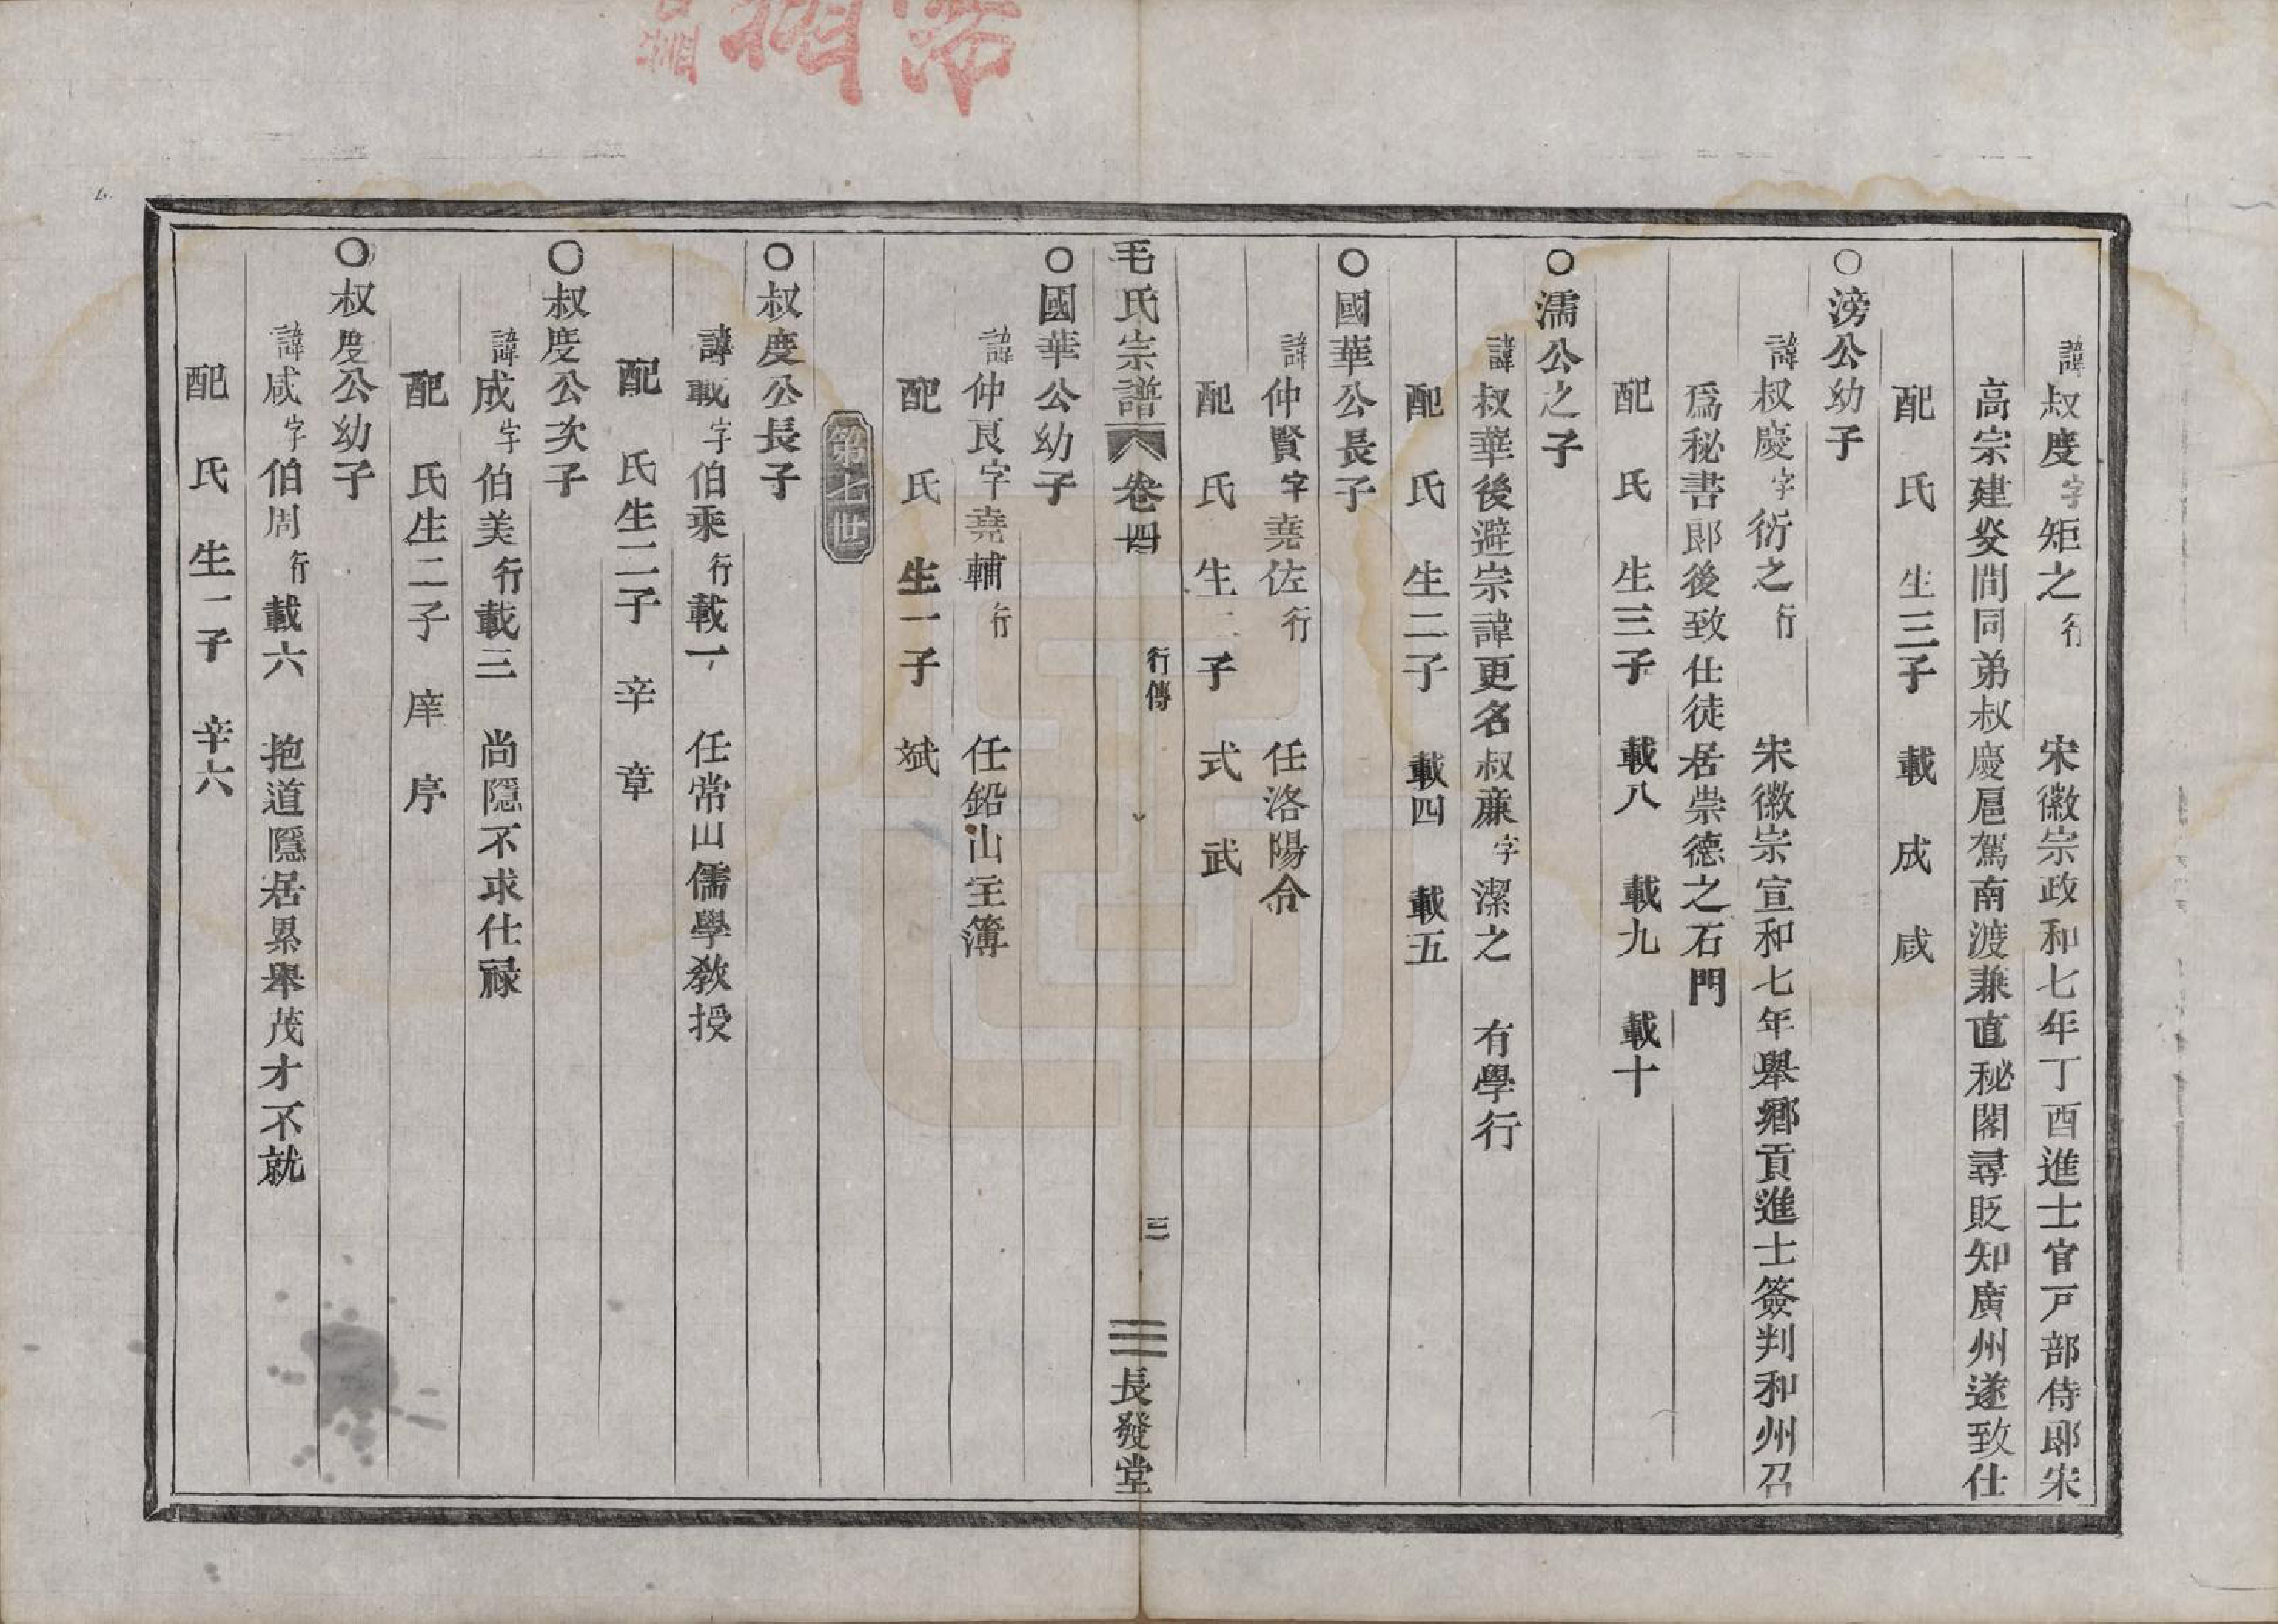 諱叔度字矩之行 宋徽宗政和七年丁酉進士官戸部侍郎宋
高宗建炎間同弟叔慶扈駕南渡兼直秘閣尋貶知廣州遂致仕
配 氏 生三子 載 成 咸
○滂公幼子
諱叔慶字衍之行 宋徽宗宣和七年舉鄉貢進士簽判和州召
爲秘書郎後致仕徒居崇德之石門
配 氏 生三子 載八 載九 載十
○濡公之子
諱叔華後避宗諱更名叔亷字潔之 有學行
配 氏 生二子 載四 載五
○國華公長子
諱仲賢字堯佐行 任洛陽令
配 氏 生二子 式 武
毛氏宗譜 卷四 行傳 三 長發堂
○國華公幼子
諱仲良字堯輔行 任鉛山主簿
配 氏 生一子 斌
第七世
○叔度公長子
諱載字伯乘行載一 任常山儒學教授
配 氏生二子 辛 章
○叔度公次子
諱成字伯美行載三 尚隱不求仕祿
配 氏生二子 庠 序
○叔度公幼子
諱咸字伯周行載六 抱道隱居累舉茂才不就
配 氏 生一子 辛六